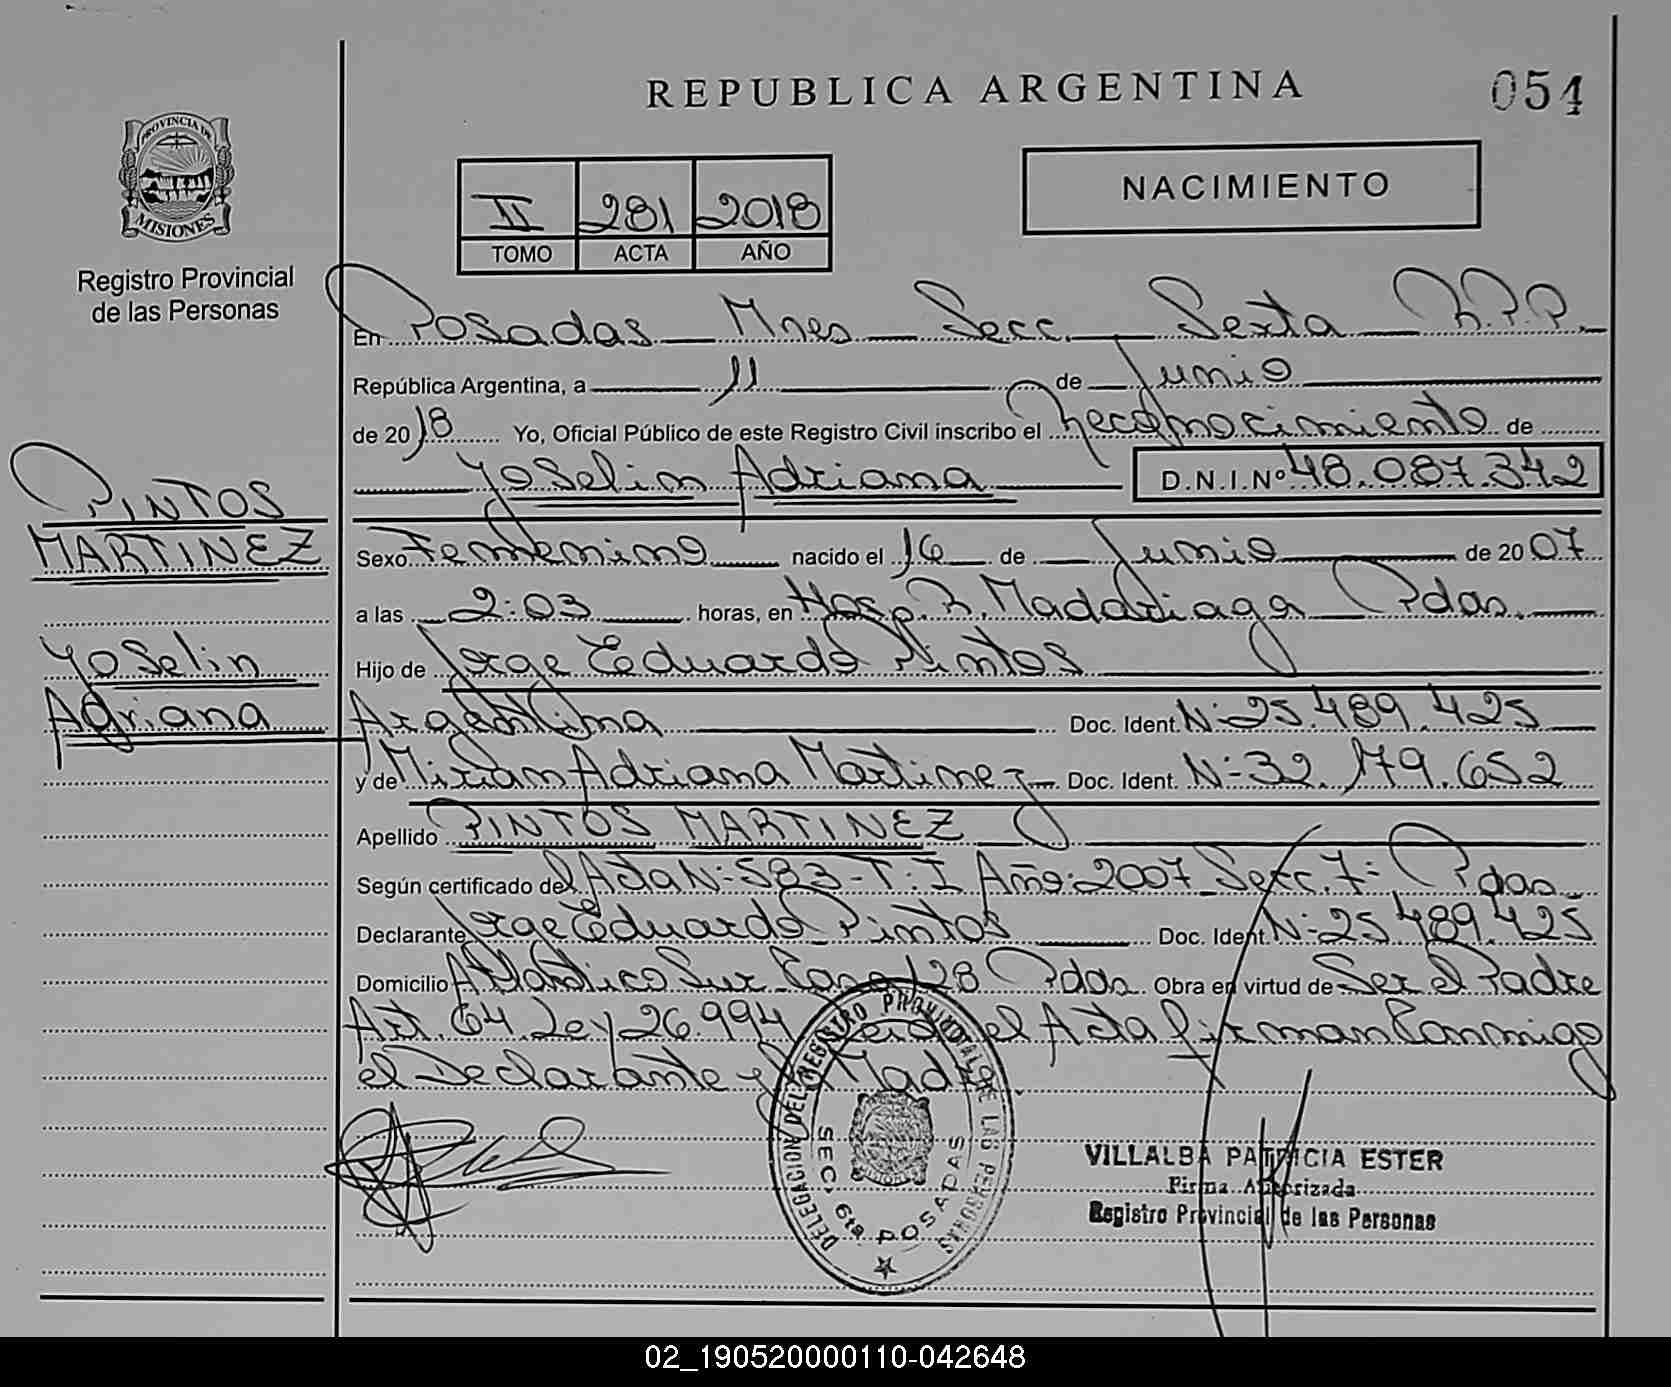 REPUBLICA ARGENTINA
054
PROVINCIA DE
MISIONES
Registro Provincial
de las Personas
II 281 2018
TOMO ACTA AÑO
NACIMIENTO
En Posadas Mnes Secc. Sexta R.P.P.
República Argentina, a 11 de Junio
de 2018 Yo, Oficial Público de este Registro Civil inscribo el Reconocimiento de
Yoselin Adriana D.N.I.Nº 48.087.342
PINTOS
MARTINEZ
Yoselin
Adriana
Sexo Femenino nacido el 16 de Junio de 2007
a las 2:03 horas, en Hosp. R. Madariaga Pdas.
Hijo de Jorge Eduardo Pintos
Argentina Doc. Ident. N: 25.489.425
y de Miriam Adriana Martinez Doc. Ident. N: 32.179.652
Apellido PINTOS MARTINEZ
Según certificado del Acta N: 583-T. I Año: 2007 Secc. 7: Pdas
Declarante Jorge Eduardo Pintos Doc. Ident. N: 25.489.425
Domicilio Atlántico Sur Casa 128 Pdas Obra en virtud de Ser el Padre
Art. 64 Ley 26.994 el Acta firman Conmigo
el Declarante y
DELEGACION DEL REGISTRO PROVINCIAL DE LAS PERSONAS
SEC. 6ta POSADAS
VILLALBA PATRICIA ESTER
Firma Autorizada
Registro Provincial de las Personas
02_190520000110-042648